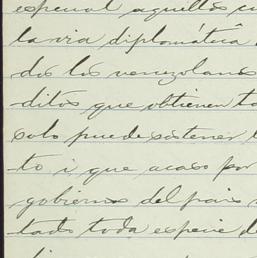 especial aquellos cu
la via diplomática
dos los venezolanos
ditos que obtienen to
solo puede sostener l
to i que acaso por
gobierno del pais
tado toda especie de